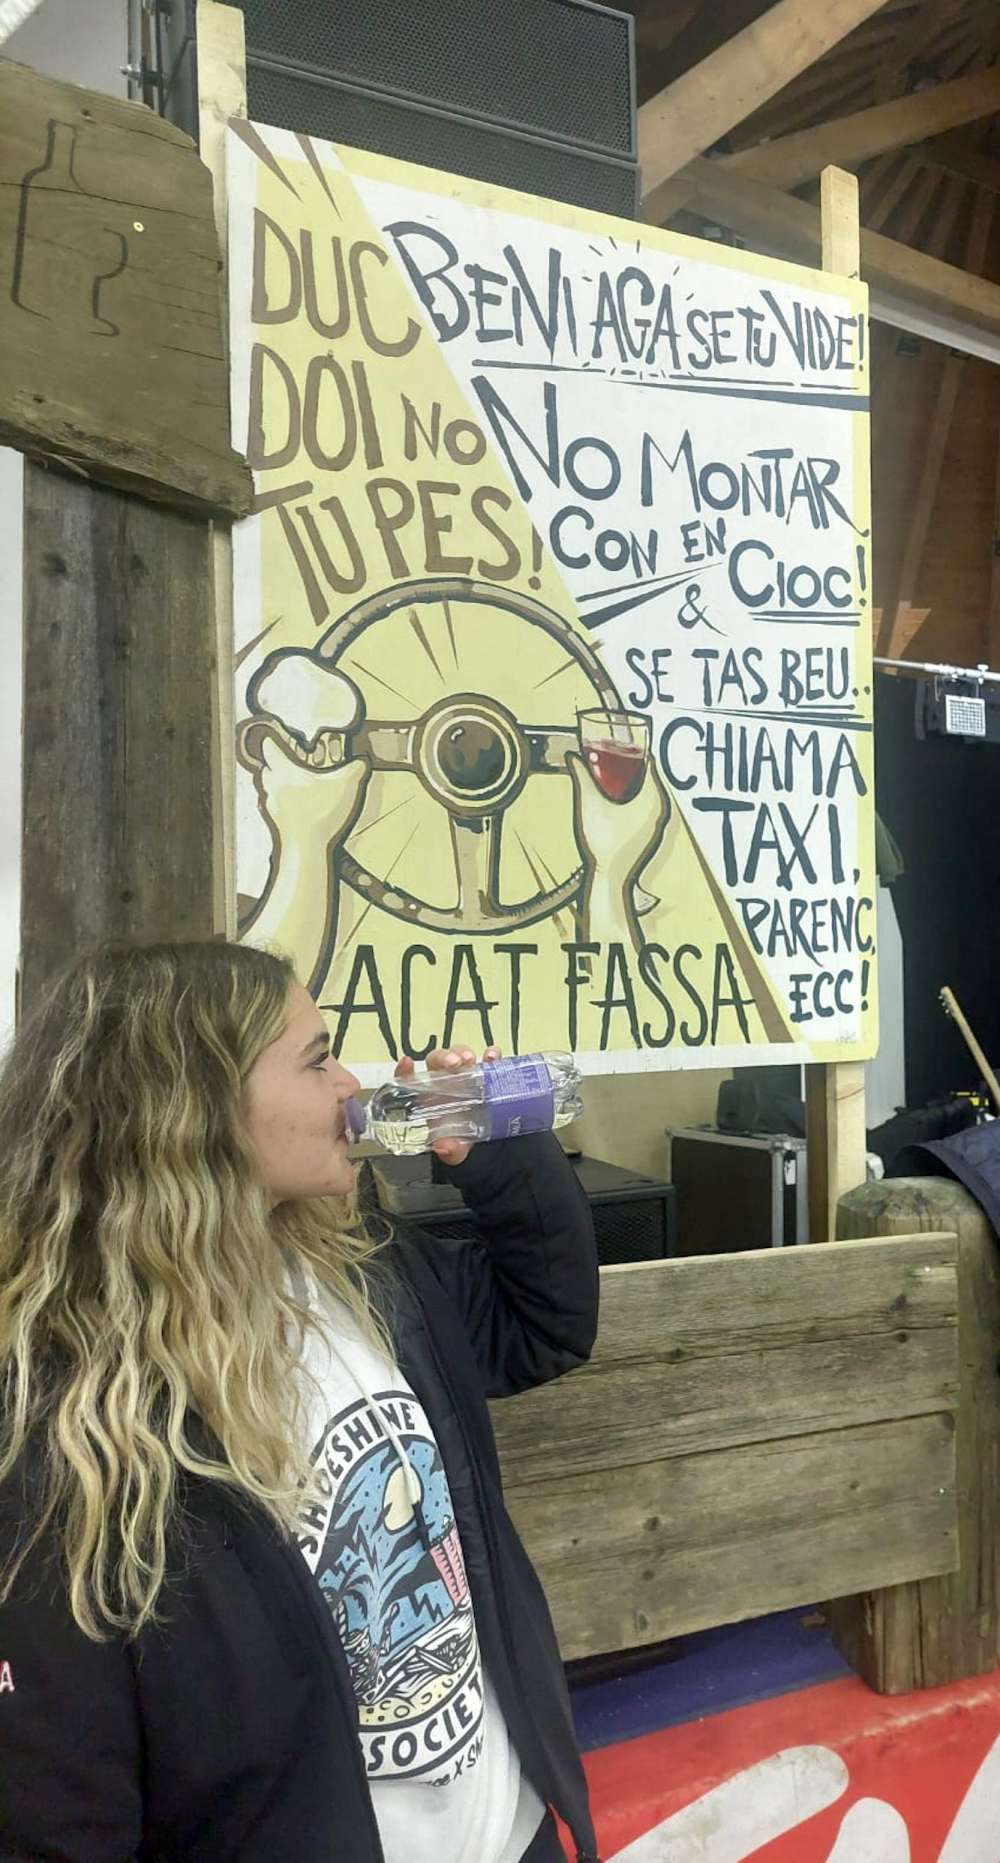 DUC
DOI NO
TU PES!
BENI AGA SE TU VIDE!
NO MONTAR
CON EN
CIOC!
&
SE TAS BEU..
CHIAMA
TAXI,
PARENC,
ECC!
ACAT FASSA
SHOESHINE
SOCIETY
A